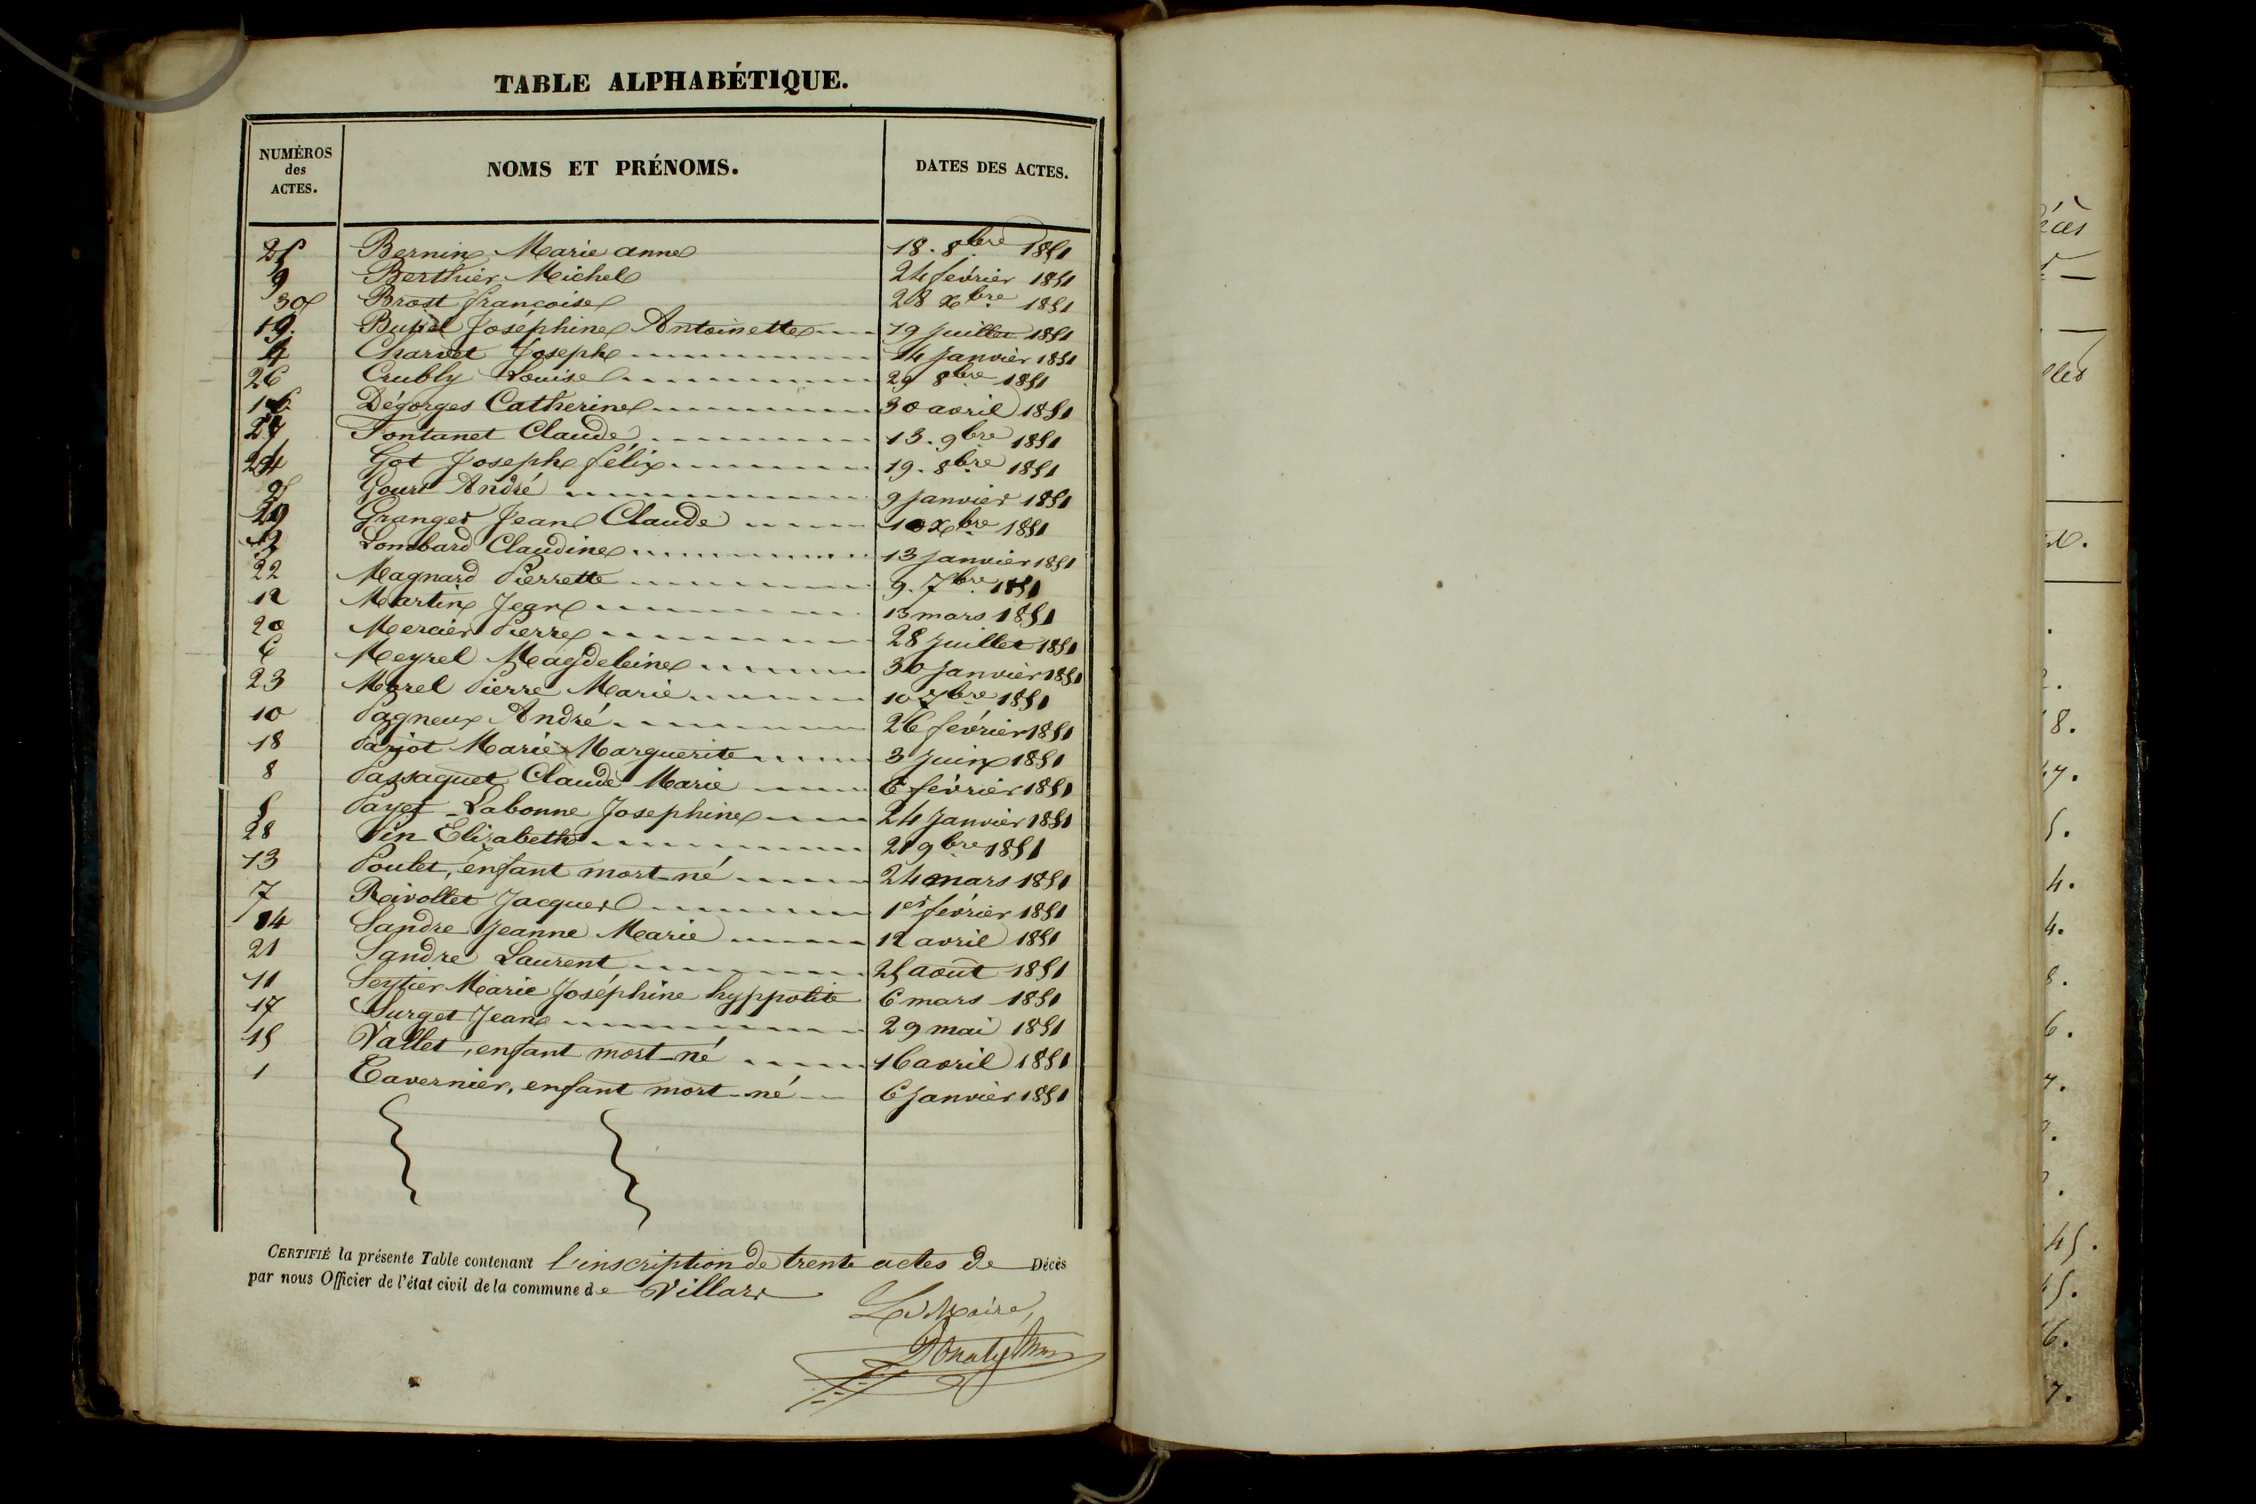 TABLE ALPHABÉTIQUE.
NUMÉROS des ACTES. NOMS ET PRÉNOMS. DATES DES ACTES.
25 Bernin Marie anne 18. 8bre 1851
9 Berthier Michel 24 février 1851
30 Brost françoise 28 xbre 1851
19. Buriel Joséphine Antoinette 19 Juillet 1851
4 Charvet Joseph 14 Janvier 1851
26 Crubly Louise 29 8bre 1851
16 Dégorges Catherine 30 avril 1851
27 Fontanet Claude 13. 9bre 1851
24 Got Joseph félix 19. 8bre 1851
2 Gourt André 9 Janvier 1851
29 Granger Jean Claude 10 xbre 1851
3 Lombard Claudine 13 Janvier 1851
22 Magnard Pierrette 9. 7bre 1851
12 Martin Jean 13 mars 1851
20 Mercier Pierre 28 Juillet 1851
6 Meyrel Magdeleine 30 Janvier 1851
23 Morel Pierre Marie 10 7bre 1851
10 Pagneux André 26 février 1851
18 Parjot Marie Marguerite 3 Juin 1851
8 Passaquet Claude Marie 6 février 1851
5 Payet-Labonne Josephine 24 Janvier 1851
28 Pin Elizabeth 21 9bre 1851
13 Poulet, enfant mort-né 24 mars 1851
7 Rivollet Jacques 1er février 1851
14 Sandre Jeanne Marie 12 avril 1851
21 Sandre Laurent 25 août 1851
11 Seytier Marie Joséphine hyppolite 6 mars 1851
17 Surget Jean 29 mai 1851
15 Vallet, enfant mort-né 16 avril 1851
1 Tavernier, enfant mort-né 6 Janvier 1851
CERTIFIÉ la présente Table contenant l'inscription de trente actes de Décès
par nous Officier de l'état civil de la commune de Villars
Le Maire,